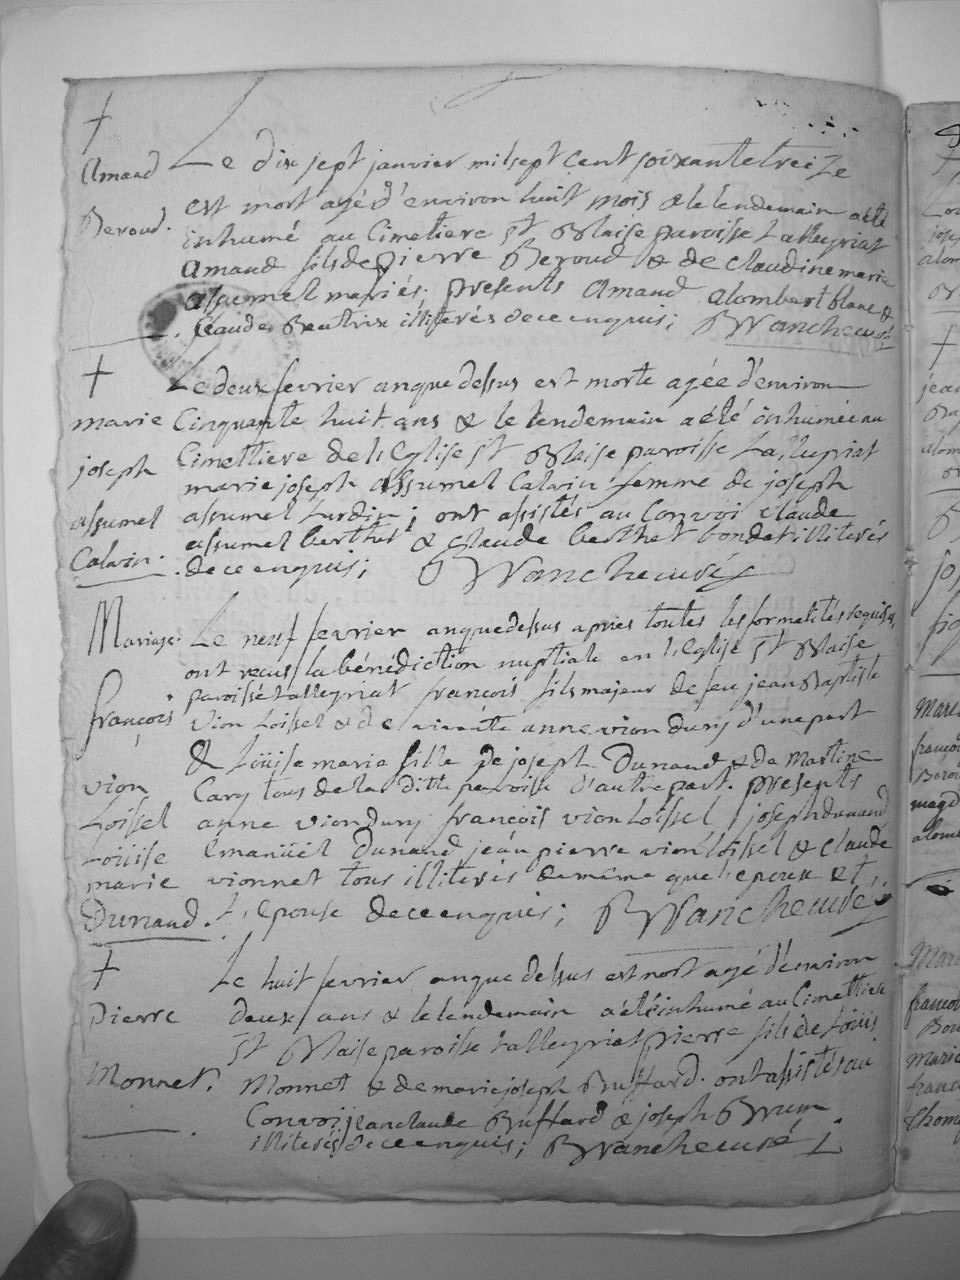 †
Amand
Beroud.
Le dix sept janvier mil sept cent soixante treize
est mort agé d'environ huit mois & le lendemain a été
inhumé au Cimetiere St Blaise paroisse Lalleyriat
Amand fils de pierre Beroud & de claudine marie
assumel mariés; presents Amand alombert blanc &
Claude Beatrix illiterés de ce enquis; Blancheuré
†
marie
joseph
assumel
Calvin.
Le deux fevrier anque dessus est morte agée d'environ
Cinquante huit ans & le lendemain a été inhumée au
Cimettiere de l'Eglise St Blaise paroisse Lalleyriat
marie joseph assumel Calvin femme de joseph
assumel Lurdin; ont assistés au Convoi claude
assumel berthet & claude berthet bondet illiterés
de ce enquis; Blancheuré
Mariage.
françois
vion
Loissel
Loüise
marie
Dunand.
Le neuf fevrier anque dessus apries toutes les formalités requises,
ont recus la bénédiction nuptiale en l'Eglise St Blaise
paroisse Lalleyriat françois fils majeur de feu jean Baptiste
vion Loissel & de vivante anne vion dury d'une part
& Loüise marie fille de joseph Dunand & de Martine
Cary tous de la ditte paroisse d'autre part. presents
anne viondury françois vion Loissel joseph dunand
Emanüel Dunand jean pierre vion loissel & claude
vionnet tous illiterés de même que l'epoux et
L'epouse de ce enquis; Blancheuré
†
Pierre
Monnet.
Le huit fevrier anque dessus est mort agé d'environ
deux ans & le lendemain a été inhumé au Cimettiere
St Blaise paroisse Lalleyriat pierre fils de Loüis
Monnet & de marie joseph Buffard. ont assistés au
Convoi jean claude Buffard & joseph Brun
illiterés de ce enquis; Blancheuré